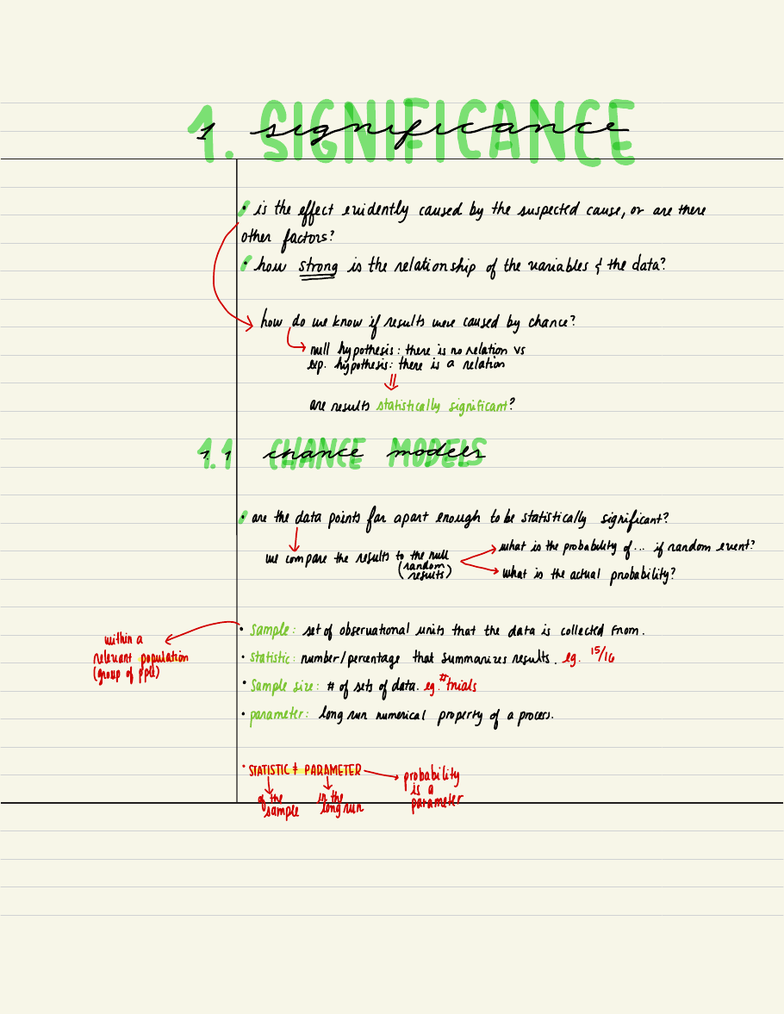 1. SIGNIFICANCE
1 significance
• is the effect evidently caused by the suspected cause, or are there
other factors?
• how strong is the relationship of the variables & the data?
how do we know if results were caused by chance?
null hypothesis: there is no relation vs
exp. hypothesis: there is a relation
are results statistically significant?
1.1 CHANCE MODELS
1.1 chance models
• are the data points far apart enough to be statistically significant?
we compare the results to the null
(random
results)
what is the probability of... if random event?
what is the actual probability?
• sample: set of observational units that the data is collected from.
within a
relevant population
(group of pple)
• statistic: number/percentage that summarizes results. eg. 15/16
• Sample size: # of sets of data. eg. # trials
• parameter: long run numerical property of a process.
• STATISTIC ≠ PARAMETER
of the
sample
in the
long run
probability
is a
parameter